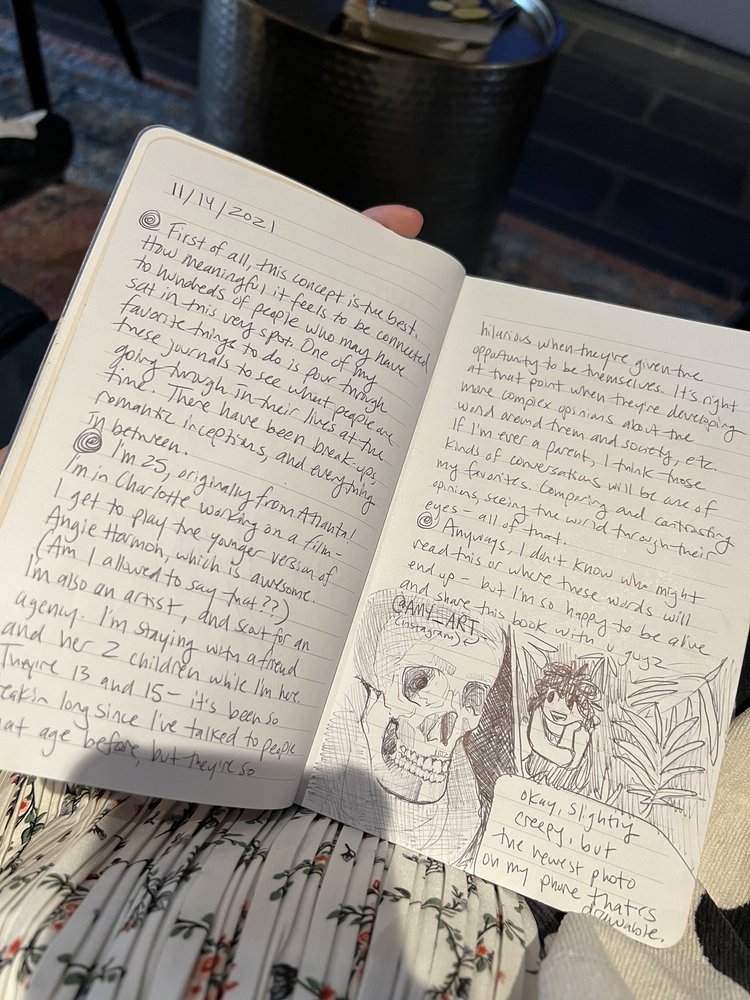 11/14/2021
First of all, this concept is the best.
How meaningful it feels to be connected
to hundreds of people who may have
sat in this very spot. One of my
favorite things to do is pour through
these journals to see what people are
going through in their lives at the
time. There have been break-ups,
romantic inceptions, and everything
in between.
I'm 25, originally from Atlanta!
I'm in Charlotte working on a film-
I get to play the younger version of
Angie Harmon, which is awesome.
(Am I allowed to say that??)
I'm also an artist, and scout for an
agency. I'm staying with a friend
and her 2 children while I'm here.
They're 13 and 15- it's been so
long since I've talked to people
that age before, but they're so
hilarious when they're given the
opportunity to be themselves. It's right
at that point when they're developing
more complex opinions about the
world around them and society, etc.
If I'm ever a parent, I think those
kinds of conversations will be one of
my favorites. Comparing and contrasting
opinions, seeing the world through their
eyes - all of that.
Anyways, I don't know who might
read this or where these words will
end up - but I'm so happy to be alive
and share this book with u guyz
@AMY_ART
(instagram)
okay, slightly
creepy, but
the newest photo
on my phone that's
drawable.